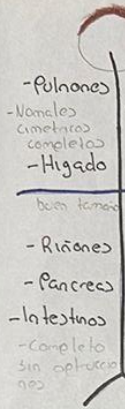 -Pulnones
-Nomales
cimetricos
completos
-Higado
buen tamaño
-Riñones
-Pancreas
-Intestinos
-Completo
sin optruccio
nes